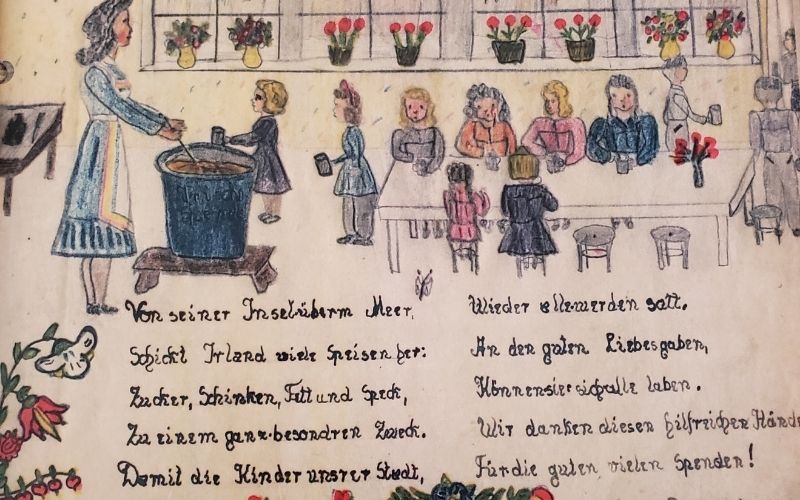 Von seiner Insel überm Meer,
Schickt Irland viele Speisen her:
Zucker, Schinken, Fett und Speck,
Zu einem ganz besondren Zweck.
Damit die Kinder unsrer Stadt,
Wieder alle werden satt.
An den guten Liebesgaben,
Können sie sich alle laben.
Wir danken diesen hilfreichen Hände
Für die guten vielen Spenden!